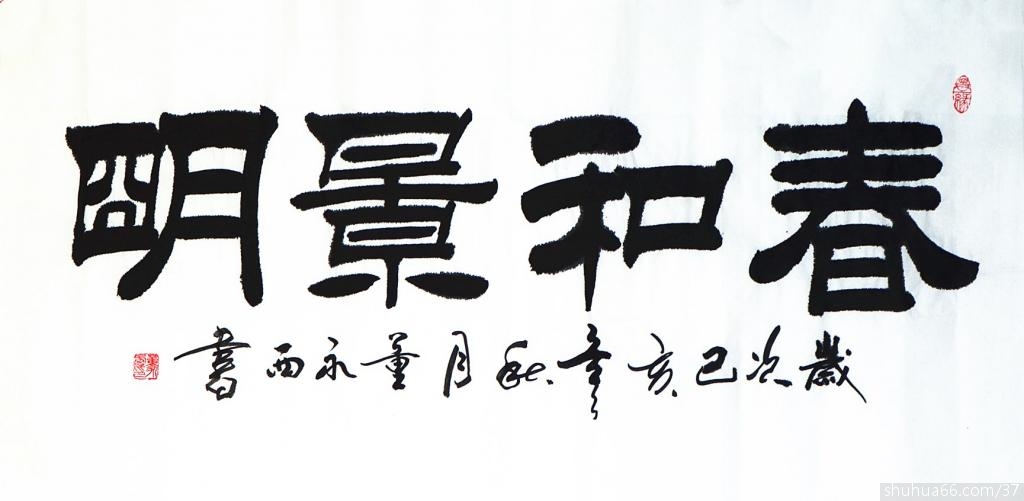 春和景明
歲次己亥年秋月董永西書
shuhua66.com/37